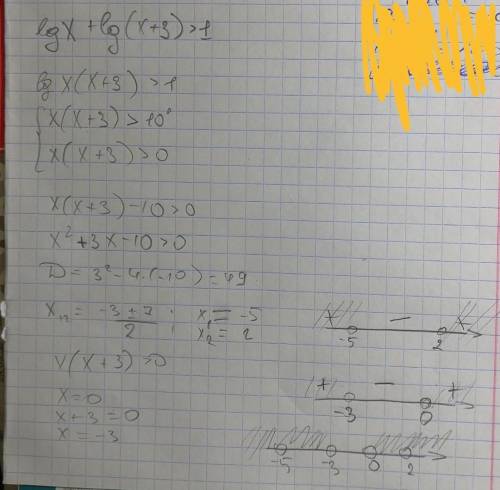 lgx + lg(x+3) > 1
lg x(x+3) > 1
x(x+3) > 10¹
x(x+3) > 0
x(x+3) - 10 > 0
x² + 3x - 10 > 0
D = 3² - 4·(-10) = 49
x₁,₂ = (-3 ± 7)/2 ; x₁ = -5
x₂ = 2
+ −
-5 2
x(x+3) > 0
+ − +
-3 0
x = 0
x + 3 = 0
x = -3
-5 -3 0 2